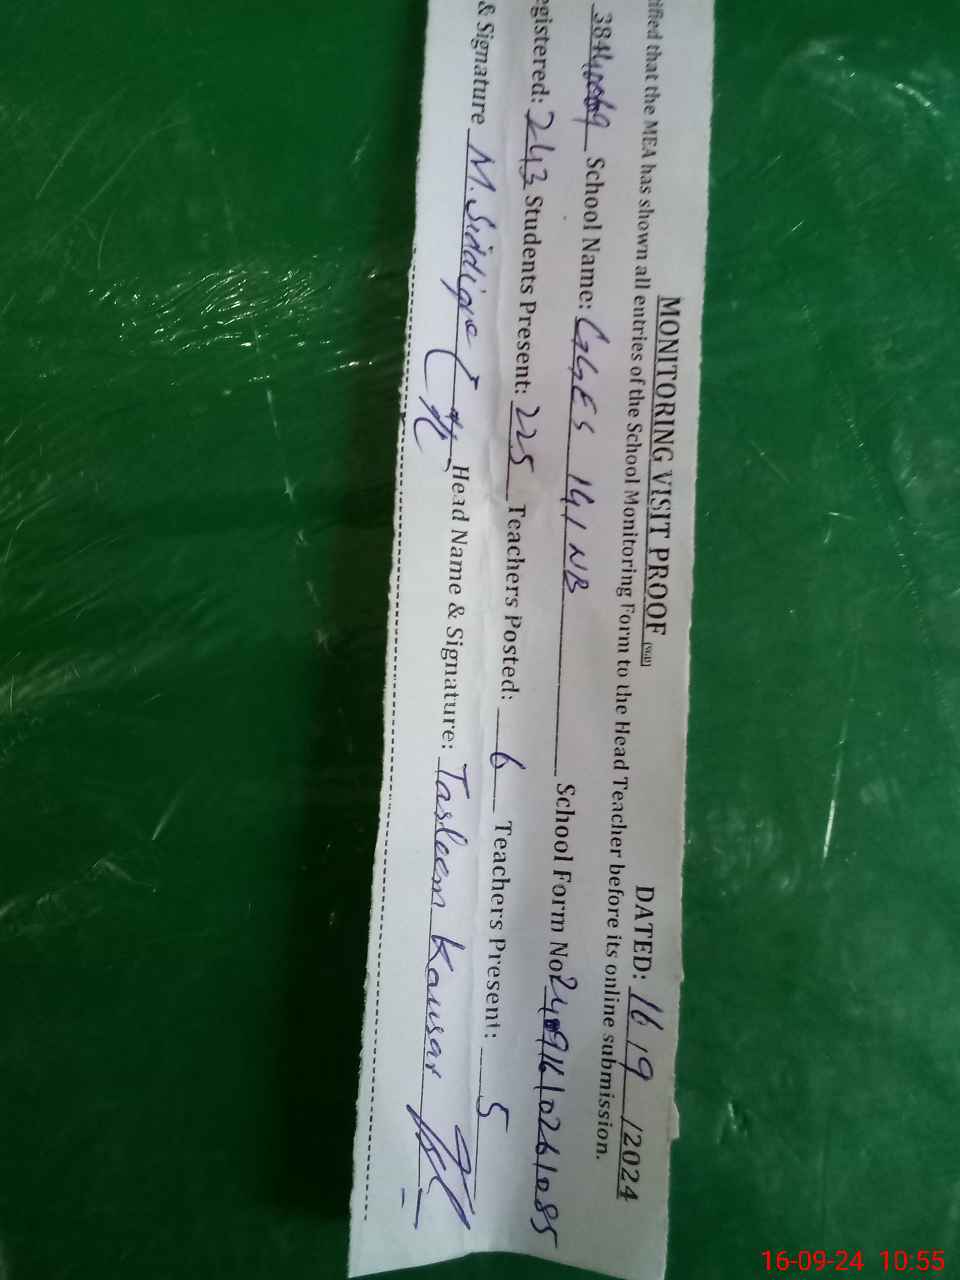 MONITORING VISIT PROOF DATED: 16/9/2024
ified that the MEA has shown all entries of the School Monitoring Form to the Head Teacher before its online submission.
School Name: GGES 141 NB School Form No
egistered: 243 Students Present: 225 Teachers Posted: 6 Teachers Present: 5
& Signature M. Siddique Head Name & Signature: Tasleem Kausar
16-09-24 10:55